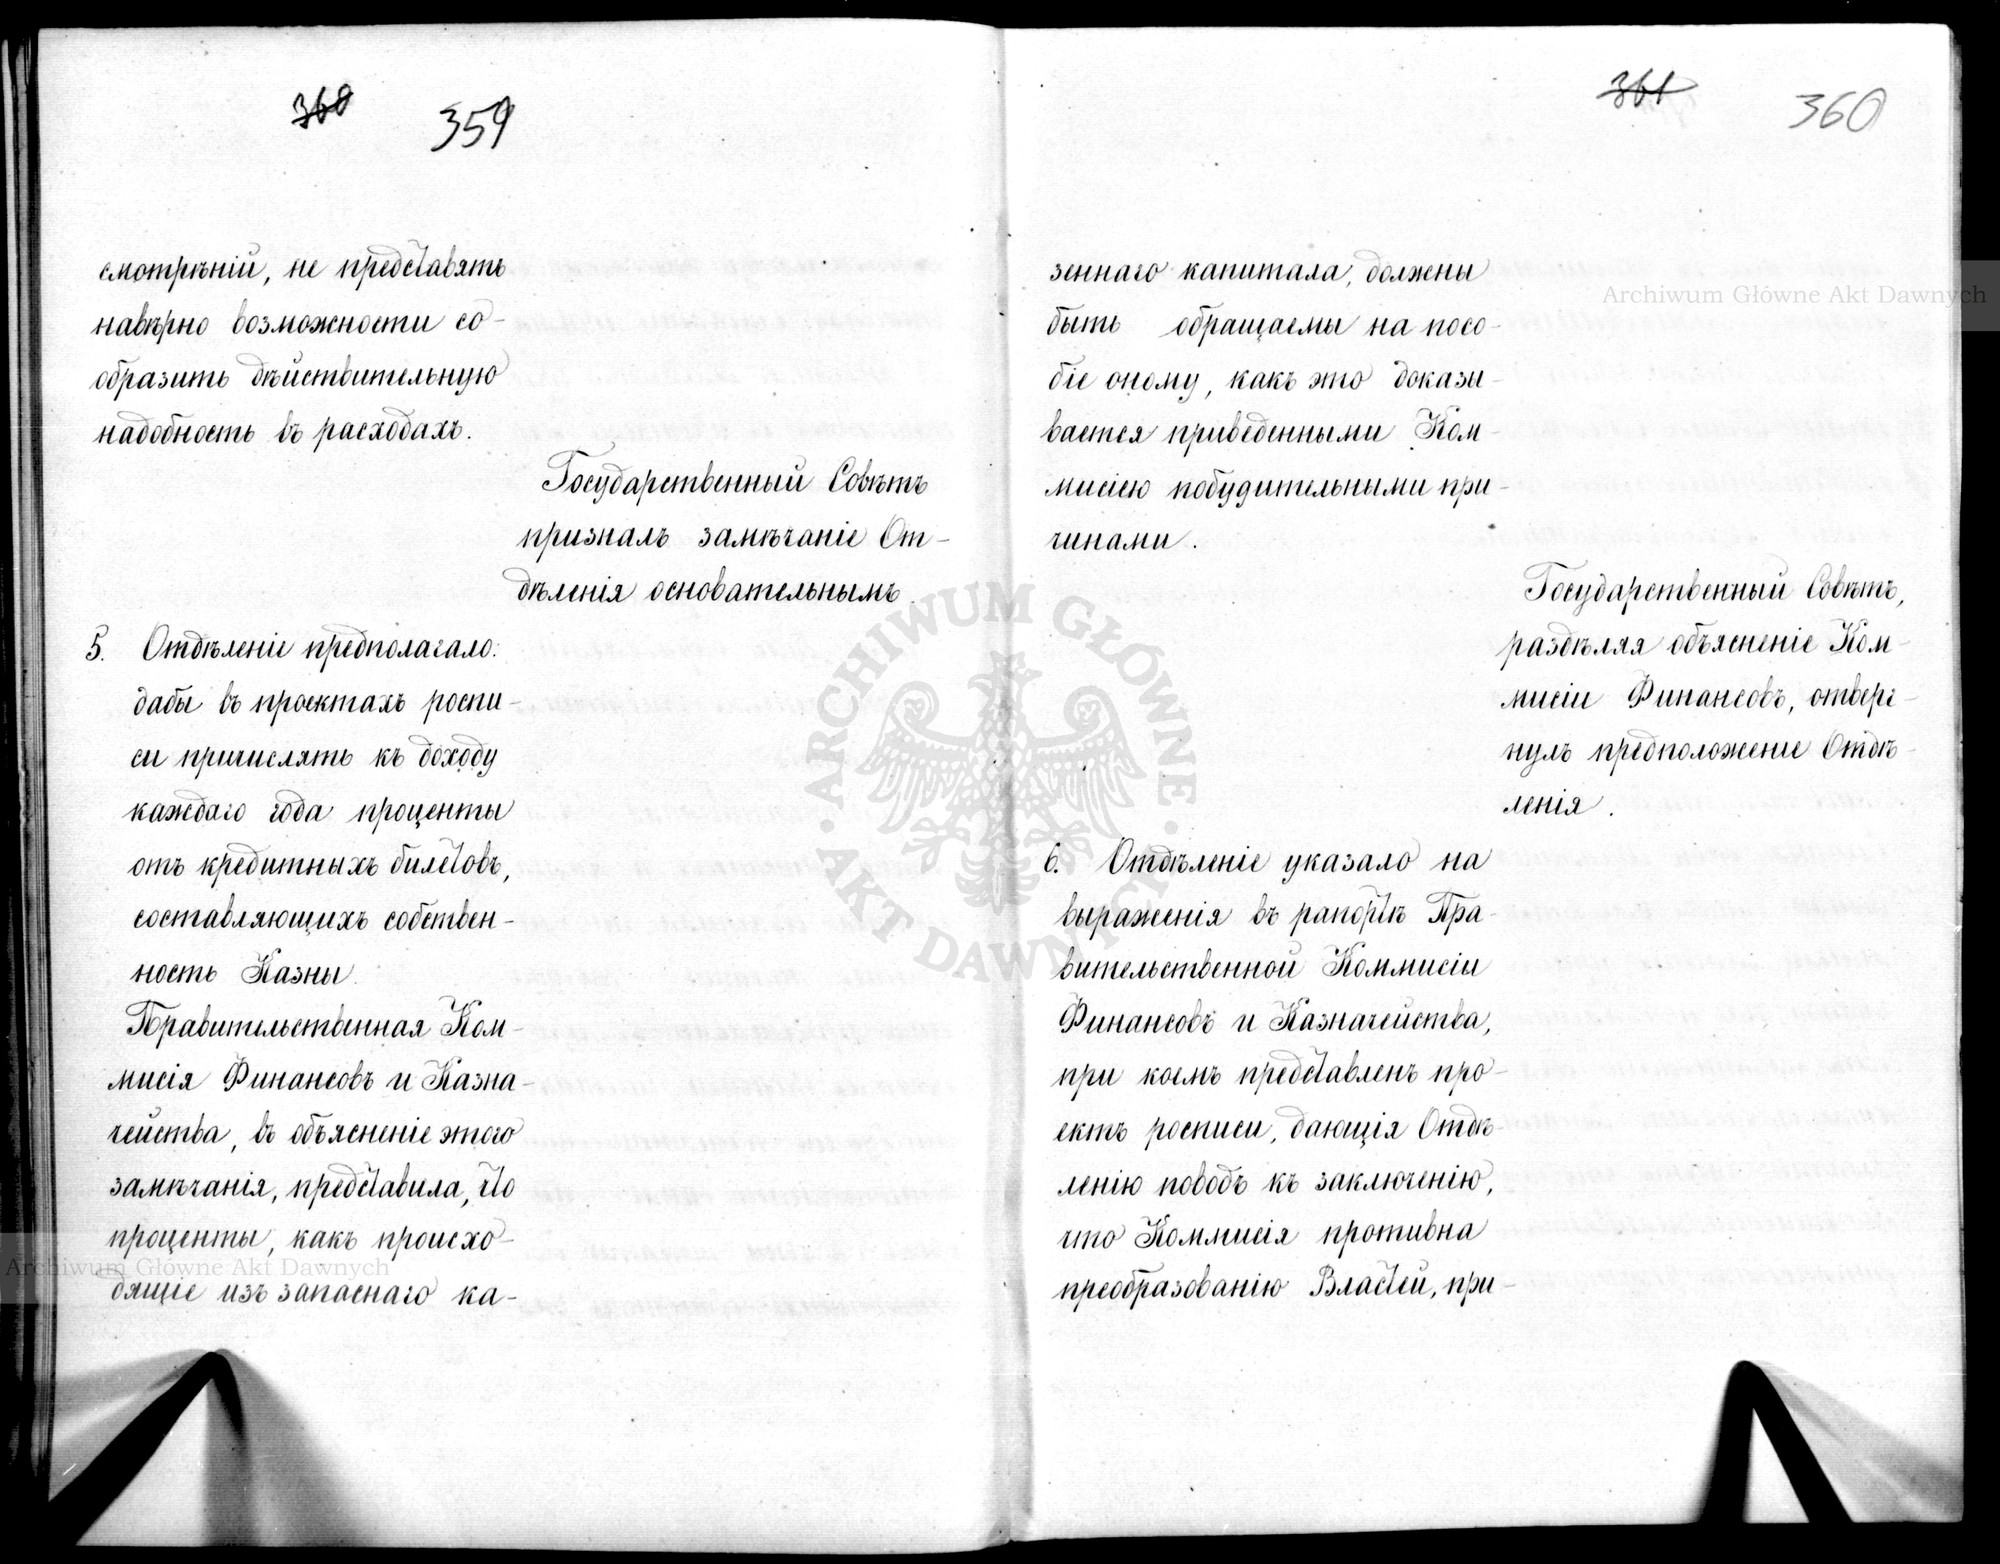 360 359
смотрѣній, не представятъ
навѣрно возможности со-
образить дѣйствительную
надобность въ расходахъ.
Государственный Совѣтъ
призналъ замѣчаніе От-
дѣленія основательнымъ.
5. Отдѣленіе предполагало:
дабы въ проектахъ роспи-
си причислять къ доходу
каждаго года проценты
отъ кредитныхъ билетовъ,
составляющихъ собствен-
ность Казны.
Правительственная Ком-
мисія Финансовъ и Казна-
чейства, въ объясненіе этого
замѣчанія, представила, что
проценты, какъ происхо-
дящіе изъ запаснаго ка-
361 360
зеннаго капитала, должны
быть обращаемы на посо-
біе оному, какъ это доказы-
вается приведенными Ком-
мисіею побудительными при-
чинами.
Государственный Совѣтъ,
раздѣляя объясненіе Ком-
мисіи Финансовъ, отверг-
нулъ предположеніе Отдѣ-
ленія.
6. Отдѣленіе указало на
выраженія въ рапортѣ Пра-
вительственной Коммисіи
Финансовъ и Казначейства,
при коемъ представленъ про-
ектъ росписи, дающія Отдѣ-
ленію поводъ къ заключенію,
что Коммисія противна
преобразованію Властей, при-
Archiwum Główne Akt Dawnych
Archiwum Główne Akt Dawnych
ARCHIWUM GŁÓWNE · AKT DAWNYCH ·